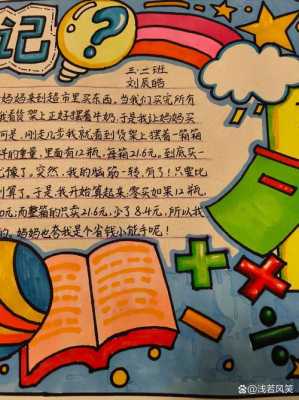 记
?
三.二班
刘辰皓
妈妈来到超市里买东西,当我们买完所有
我看货架上正好摆着牛奶.于是我让妈妈买
可是,刚走几步我就看到货架上摆着一箱箱
样的重量,里面有12瓶,每箱21.6元,到底买一
犹豫了。突然,我的脑筋一转,有了!只要比
划算了。于是我开始算起来,零买如果12瓶,
0元;而整箱的只卖21.6元,少了8.4元,所以我
的。妈妈也夸我是个省钱小能手呢!
@浅若风笑